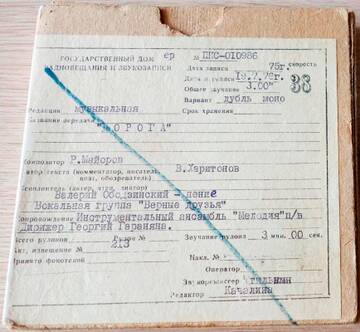 ГОСУДАРСТВЕННЫЙ ДОМ ер № ЦКС-010986
РАДИОВЕЩАНИЯ И ЗВУКОЗАПИСИ
Дата записи 75г. скорость
Дата 38
Общее звучание 3.00"
Вариант дубль моно
Редакция музыкальная Срок хранения
Название передачи
"ДОРОГА"
Композитор Р.Майоров
Автор текста (комментатор, писатель, В.Харитонов
поэт, обозреватель)
Исполнитель (актер, чтец, диктор)
Валерий Ободзинский - пение
Вокальная группа "Верные друзья"
Сопровождение Инструментальный ансамбль "Мелодия" п/в
Дирижер Георгий Гаранян.
Всего рулонов Рулон № Звучание рулона 3 мин. 00 сек.
Акт, извещение № 213
Принято фонотекой Накл. №
Оператор
Звукорежиссер
Редактор Качалина